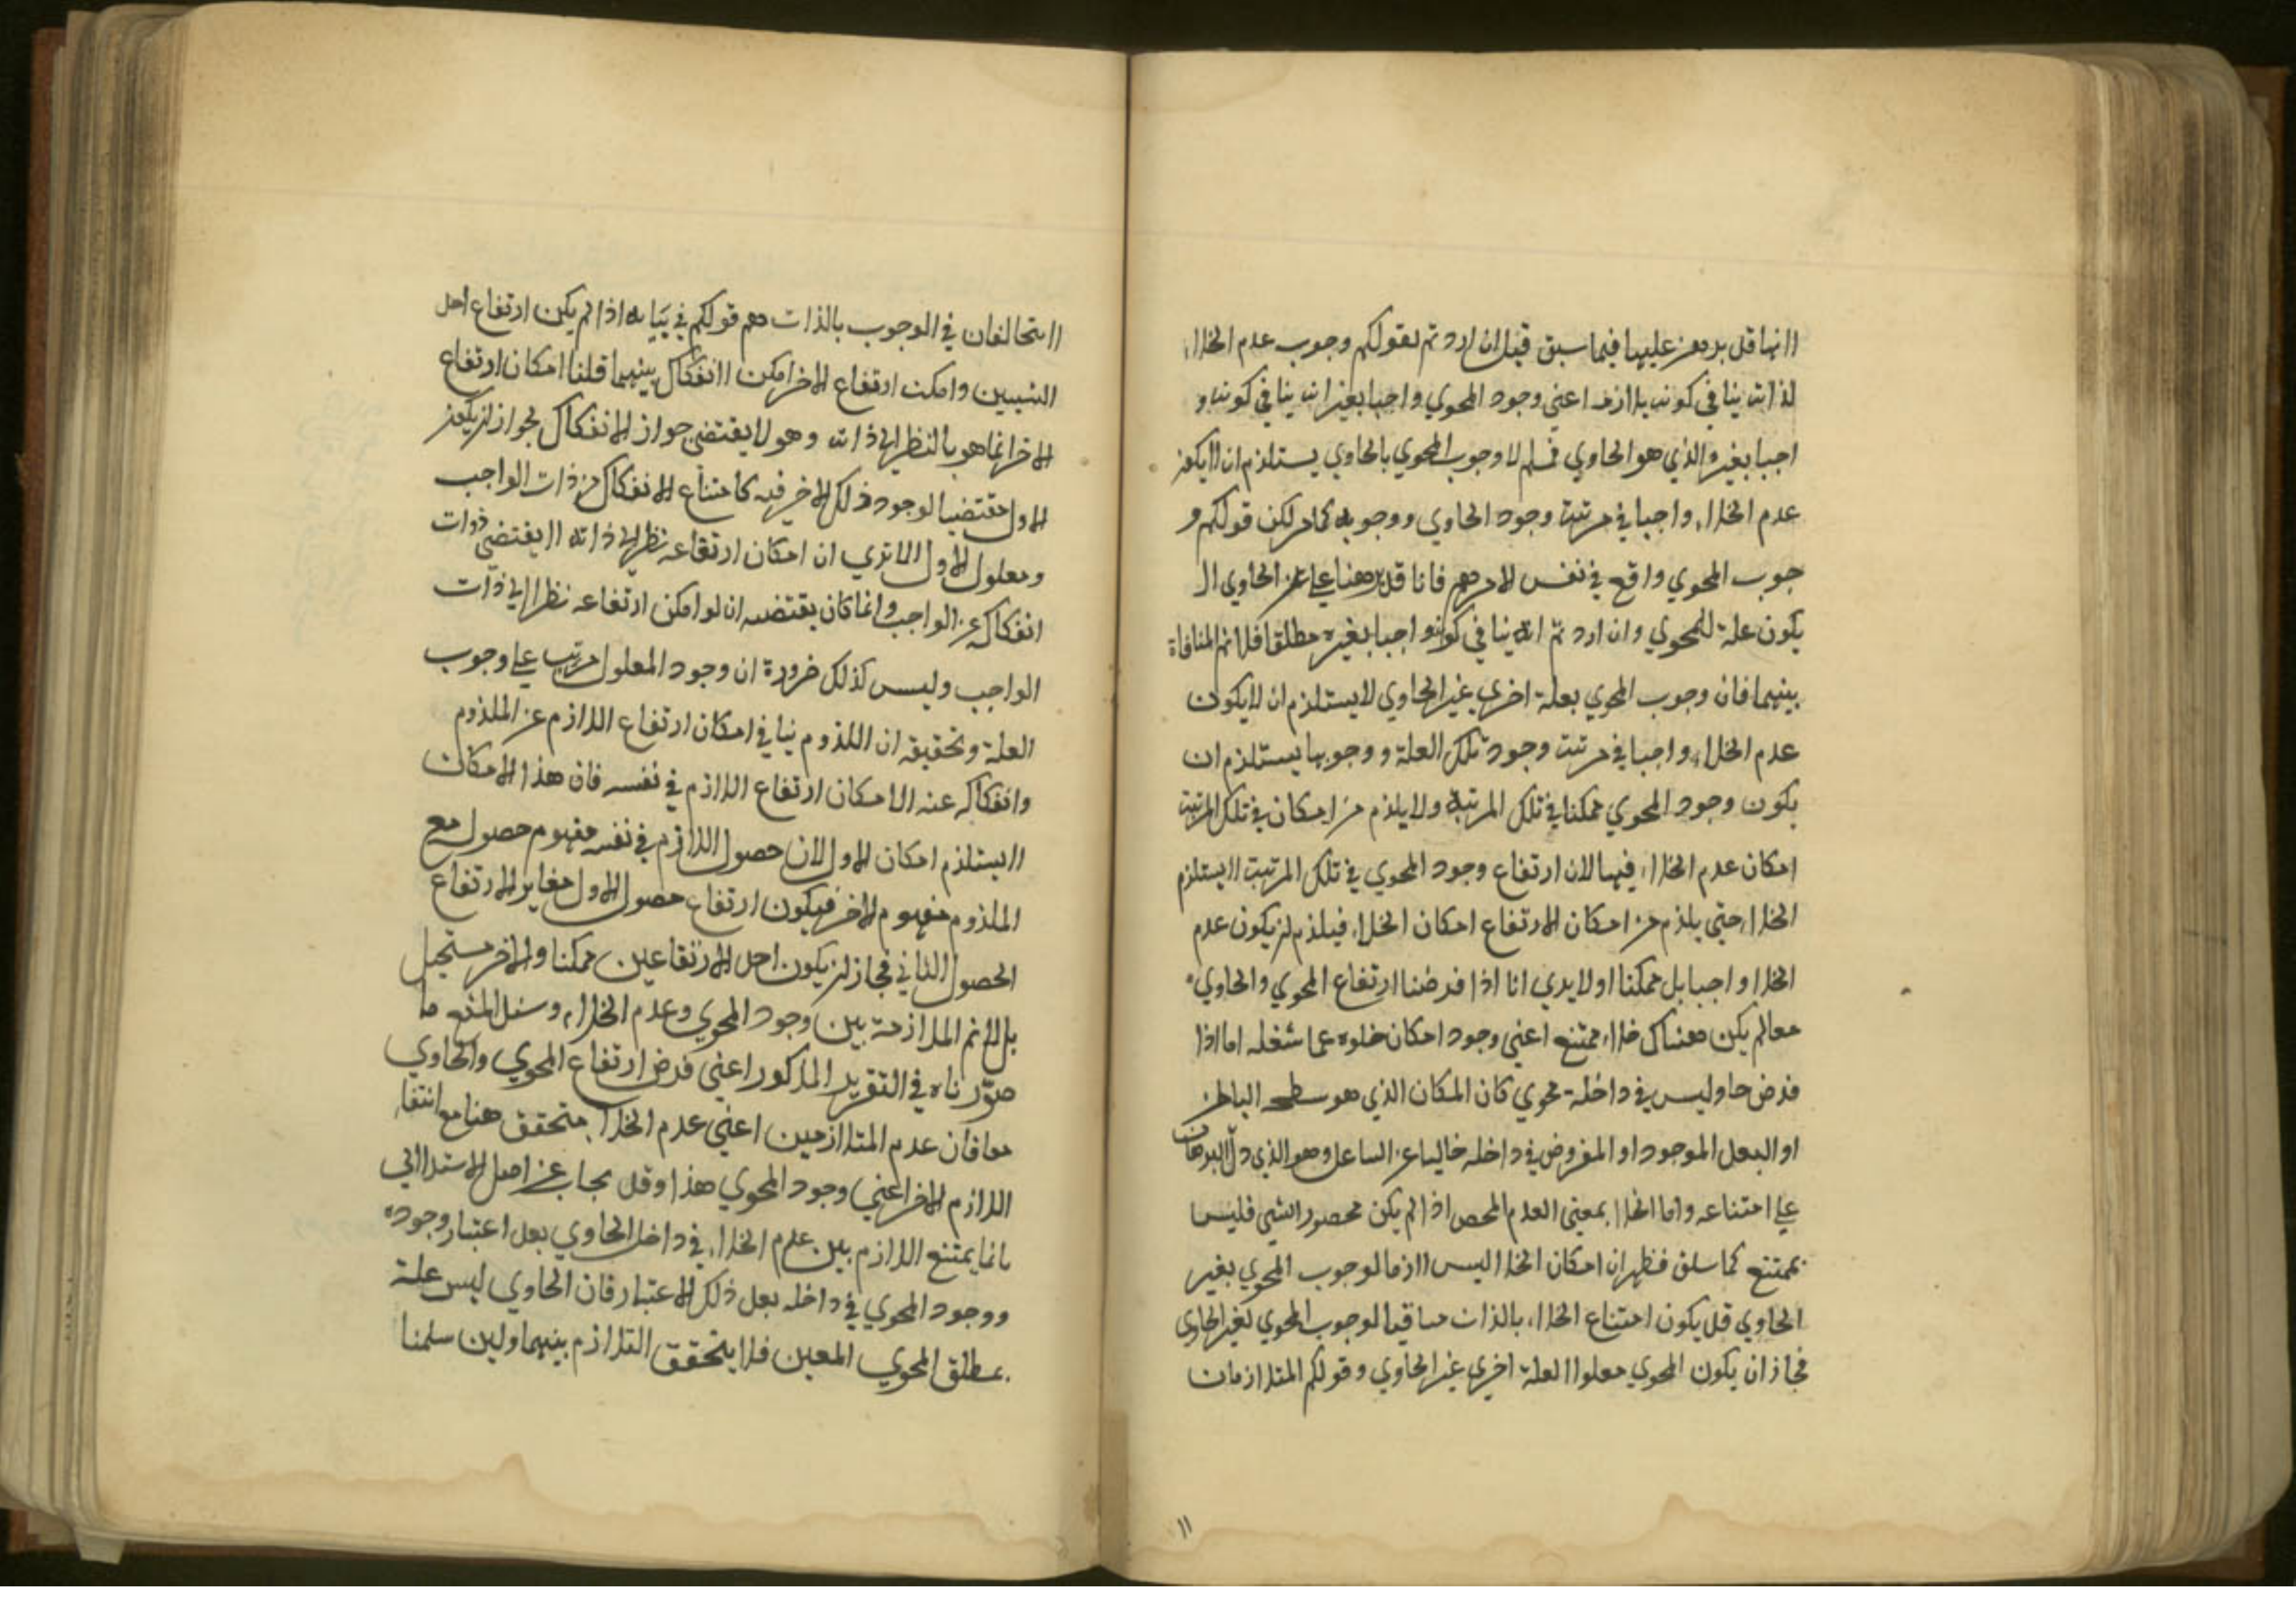 لانها قد برهن عليها فيما سبق قيل ان اردتم بقولكم وجوب عدم الخلاء
لذاته ينافي كونه بلازمه اعني وجود المحوي واجبا بغيره انه ينافي كونه و
اجبا بغيره الذي هو الحاوي فمسلم لا وجوب المحوي بالحاوي يستلزم ان لا يكون
عدم الخلاء واجبا في مرتبة وجود الحاوي ووجوبه كما مر لكن قولكم و
جوب المحوي واقع في نفس الامر فانا قد برهنا علي ان الحاوي لا
يكون علة للمحوي وان اردتم انه ينافي كونه واجبا بغيره مطلقا فلا نم المنافاة
بينهما فان وجوب المحوي بعلة اخري غير الحاوي لا يستلزم ان لا يكون
عدم الخلاء واجبا في مرتبة وجود تلك العلة ووجوبها يستلزم ان
يكون وجود المحوي ممكنا في تلك المرتبة ولا يلزم من امكان في تلك المرتبة
امكان عدم الخلاء فيها لان ارتفاع وجود المحوي في تلك المرتبة لا يستلزم
الخلاء حتي يلزم من امكان الارتفاع امكان الخلاء فيلزم ان يكون عدم
الخلا واجبا بل ممكنا اولا يري انا اذا فرضنا ارتفاع المحوي والحاوي
معا لم يكن هناك خلاء ممتنع اعني وجود امكان خلوه عما شغله اما اذا
فرض حاو ليس في داخله محوي كان المكان الذي هو سطحه الباطن
او البعد الموجود او المفروض في داخله خاليا عن الشاغل وهو الذي دل البرهان
علي امتناعه واما الخلا بمعني العدم المحض اذا لم يكن محصورا بشي فليس
بممتنع كما سلف فظهر ان امكان الخلا ليس لازما لوجوب المحوي بغير
الحاوي قد يكون امتناع الخلاء بالذات منافيا لوجوب المحوي لغير الحاوي
فجاز ان يكون المحوي معلولا لعلة اخري غير الحاوي وقولكم المتلازمان
١١
لا يتخالفان في الوجوب بالذات وهم قولكم في بيانه اذا لم يكن ارتفاع احد
الشيئين وامكن ارتفاع الاخر امكن الانفكاك بينهما قلنا امكان ارتفاع
الاخر انما هو بالنظر الي ذاته وهو لا يقتضي جواز الانفكاك لجواز ان يكون
الاول مقتضيا لوجود ذلك الاخر فيه كامتناع الانفكاك من ذات الواجب
ومعلول الاول الا تري ان امكان ارتفاعه نظرا الي ذاته لا يقتضي ذوات
انفكاك عن الواجب وانما كان يقتضيه ان لو امكن ارتفاعه نظرا الي ذات
الواجب وليس كذلك ضرورة ان وجود المعلول مرتب علي وجوب
العلة وتحقيقه ان اللزوم ينافي امكان ارتفاع اللازم عن الملزوم
وانفكاكه عنه لا امكان ارتفاع اللازم في نفسه فان هذا الامكان
لا يستلزم امكان الاول لان حصول اللازم في نفسه مفهوم حصول مع
الملزوم مفهوم الاخر فيكون ارتفاع حصول الاول مغاير الارتفاع
الحصول الثاني فجاز ان يكون احد الارتفاعين ممكنا والاخر مستحيل
بل لا نم الملازمة بين وجود المحوي وعدم الخلاء وسند المنع ما
صورناه في التقرير المذكور اعني فرض ارتفاع المحوي والحاوي
معا فان عدم المتلازمين اعني عدم الخلا متحقق هنا مع انتفاء
اللازم الاخر اعني وجود المحوي هذا وقد يجاب عن اصل الاستدلال
بانما يمتنع اللازم بين عدم الخلاء في داخل الحاوي بعد اعتبار وجوده
ووجود المحوي في داخله بعد ذلك الاعتبار فان الحاوي ليس علة
مطلق المحوي المعين فلا يتحقق التلازم بينهما ولئن سلمنا